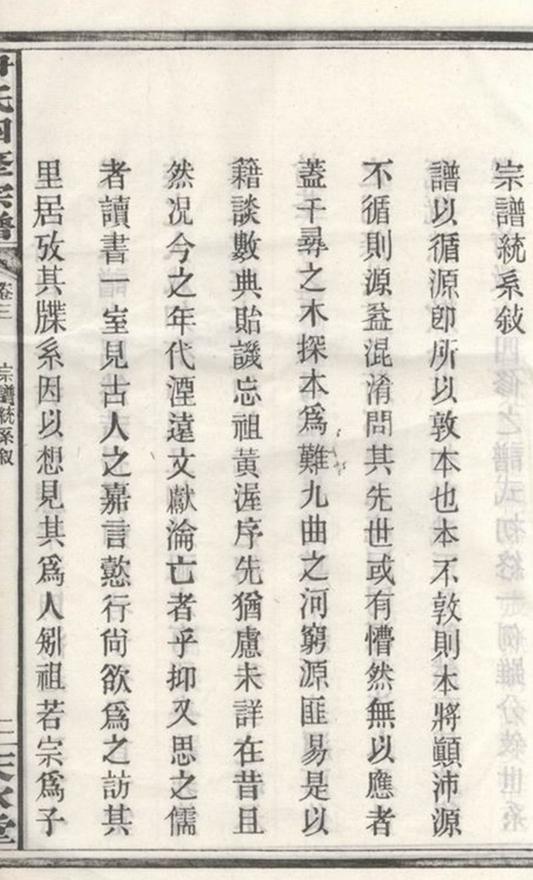 宗譜統系敍
譜以循源卽所以敦本也本不敦則本將顚沛源
不循則源益混淆問其先世或有懵然無以應者
蓋千尋之木探本爲難九曲之河窮源匪易是以
籍談數典貽譏忘祖黃渥序先猶慮未詳在昔且
然况今之年代湮遠文獻淪亡者乎抑又思之儒
者讀書一室見古人之嘉言懿行尙欲爲之訪其
里居攷其牒系因以想見其爲人矧祖若宗爲子
氏四修宗譜
卷三
宗譜統系敍
二